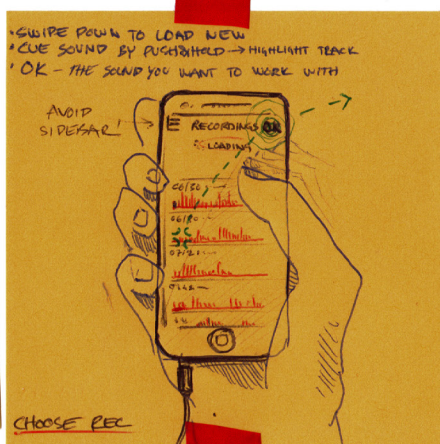 • SWIPE DOWN TO LOAD NEW
• CUE SOUND BY PUSH&HOLD → HIGHLIGHT TRACK
• OK - THE SOUND YOU WANT TO WORK WITH
AVOID
SIDEBAR!
RECORDINGS OK
LOADING
06/30
06/20
07/21
CHOOSE REC